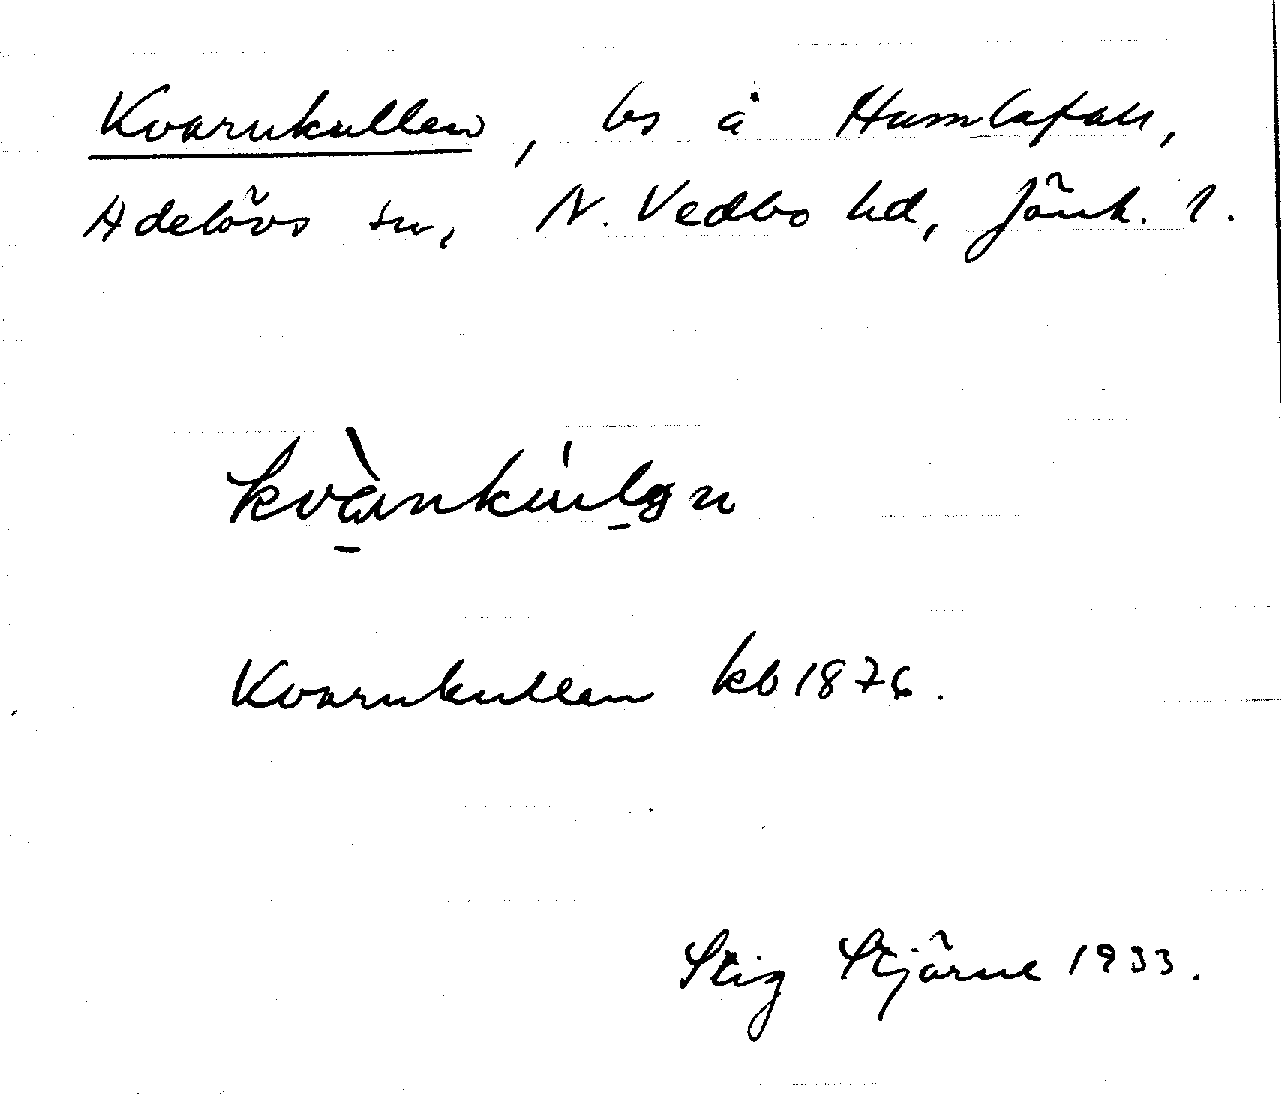 Kvarnkullen, bs å Humlafall,
Adelövs sn, N. Vedbo hd, Jönk. l.
Kvarnkullen kb 1876.
Stig Stjärne 1933.